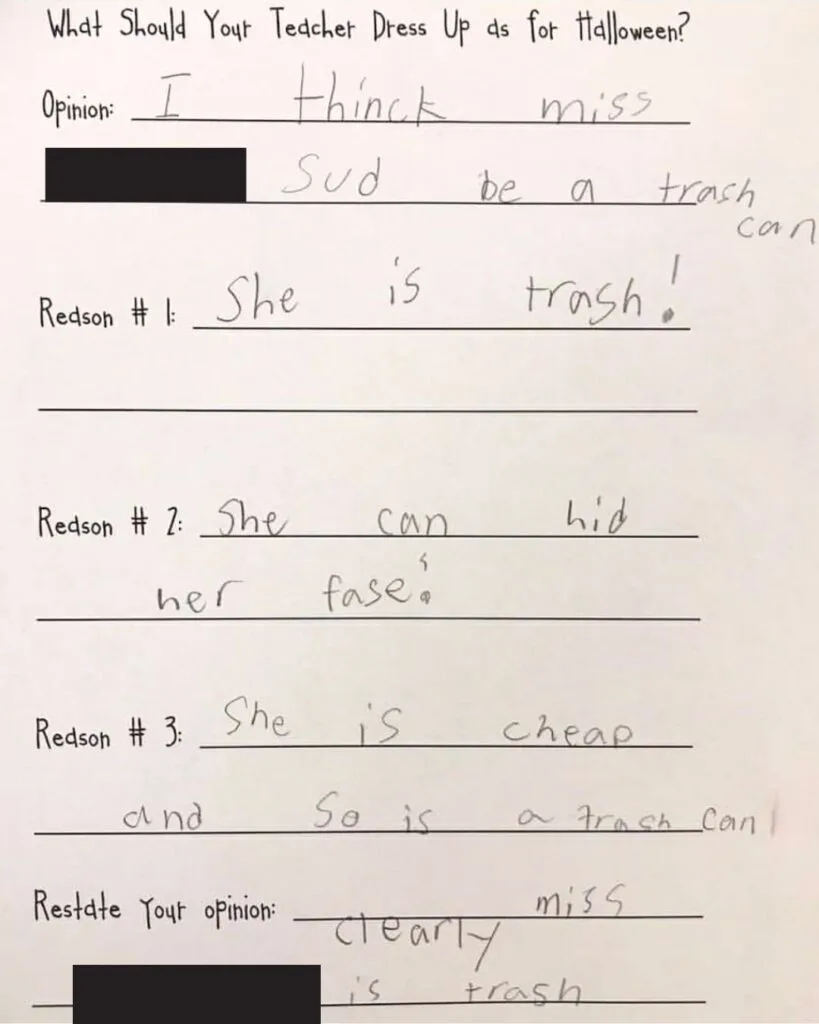 What Should Your Teacher Dress Up as for Halloween?
Opinion: I thinck miss
sud be a trash
can
Reason # 1: She is trash!
Reason # 2: She can hid
her fase!
Reason # 3: She is cheap
and so is a trash can
Restate your opinion: clearly miss
is trash